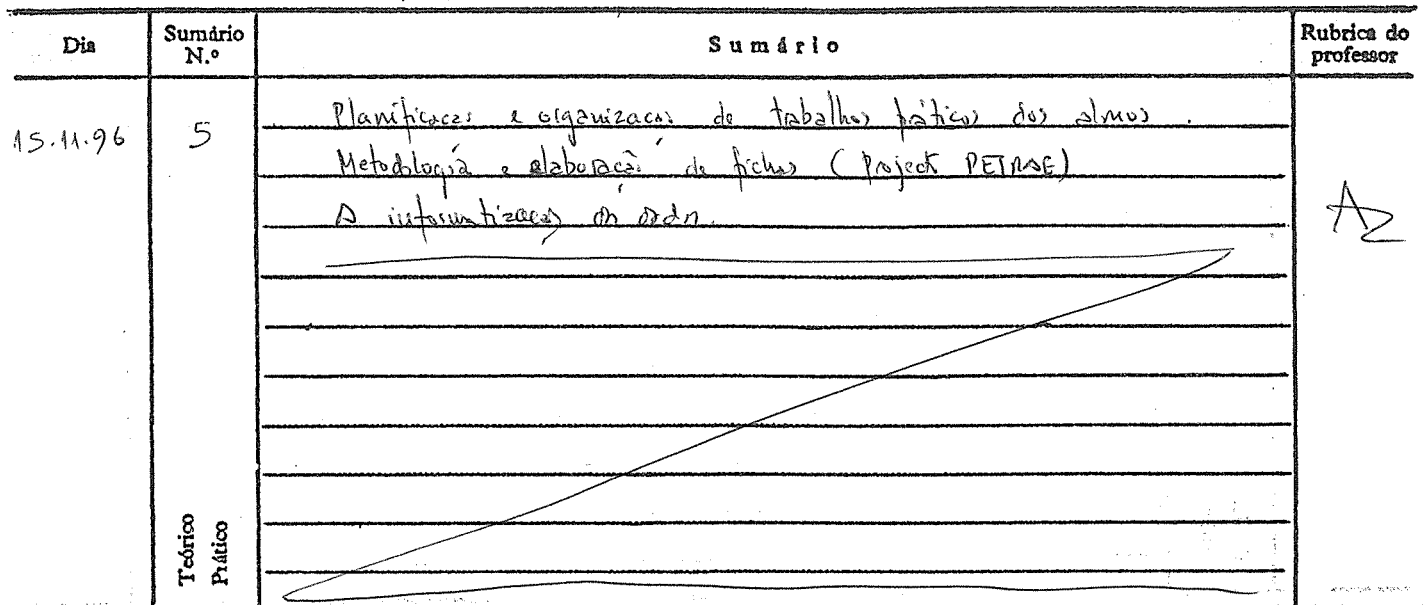 Dia Sumário N.º Sumário Rubrica do professor
15.11.96 5 Planificação e organização de trabalhos práticos dos alunos.
Metodologia e elaboração de fichas (Project PETRAE)
A informatização
AZ
Teórico
Prático